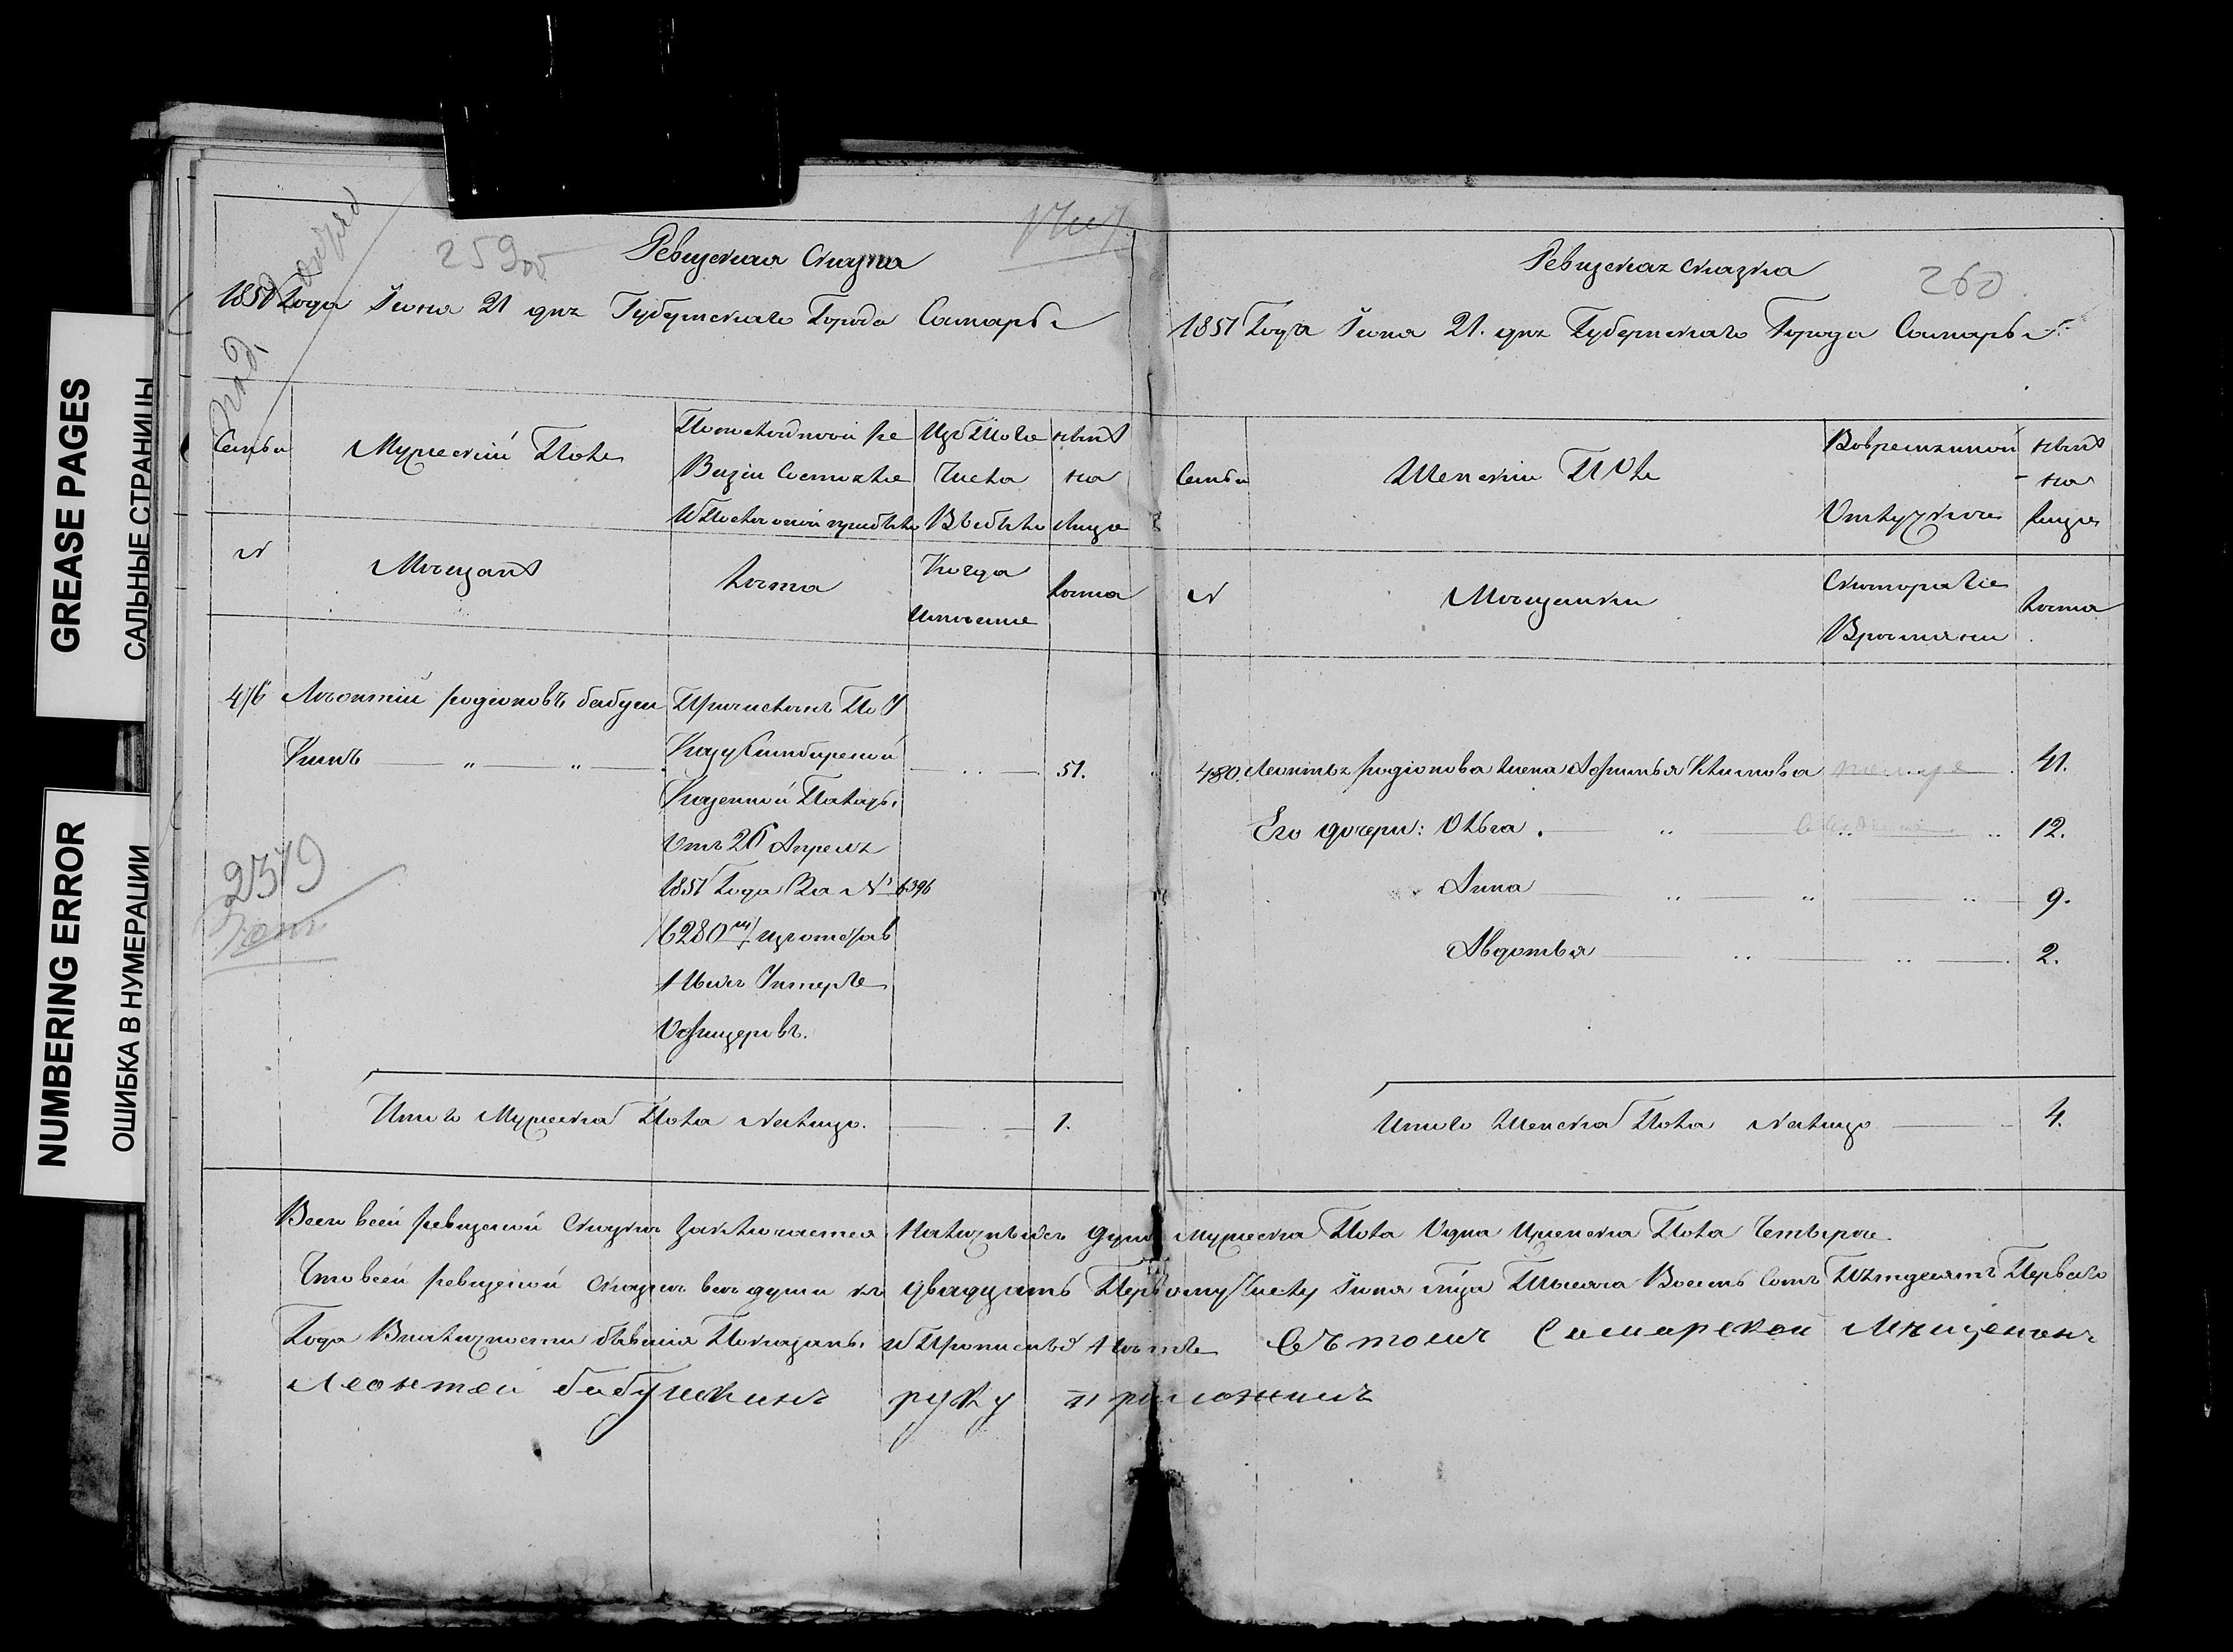 GREASE PAGES
САЛЬНЫЕ СТРАНИЦЫ
NUMBERING ERROR
ОШИБКА В НУМЕРАЦИИ
259об
Ревизская Сказка
1851 Года Іюня 21 дня Губернскаго Города Самары
Семьи
Мужескій Полъ
По последной ре
визіи состояло
и После оной прибыло
Изъ Того
Числа
Выбыло
ныне
на
лицо
№
Мещане
Лета
Когда
Именно
Лета
476 Леонтій родіоновъ бабуш
кинъ
Причисленъ По У
казу Симбирской
Казенной Палаты
Отъ 26 Апреля
1851 Года За № 6396
6280
Унтеръ
Офицеровъ.
51.
2379
Итого Мужеска Пола Налицо. 1.
Ревизская сказка
260
1851 Года Іюня 21. дня Губернскаго Города Самары
Семьи
Женскій Полъ
Во временной
Отлучкѣ
ныне
на
лицо
№
Мещанки
Съ котораго
Времяни
Лета
480. Леонтья родіонова жена Афимья Климова 41.
Его дочери: Ольга . 12.
Анна 9.
Авдотья 2.
Итого Женска Пола Налицо 4.
Всего въ сей ревизской Сказке заключается Наличныхъ душъ мужеска Пола Одна Женска Пола Четыре
Что въ сей ревизской сказке все души къ двадцать Первому Числу Іюня Тысяча Восемь Сотъ Пятдесятъ Перваго
Года В наличности бывшія Показаны и Прописныхъ Нетъ Въ томъ Самарской Мещененъ
Леонтей бабушкинъ руку приложилъ